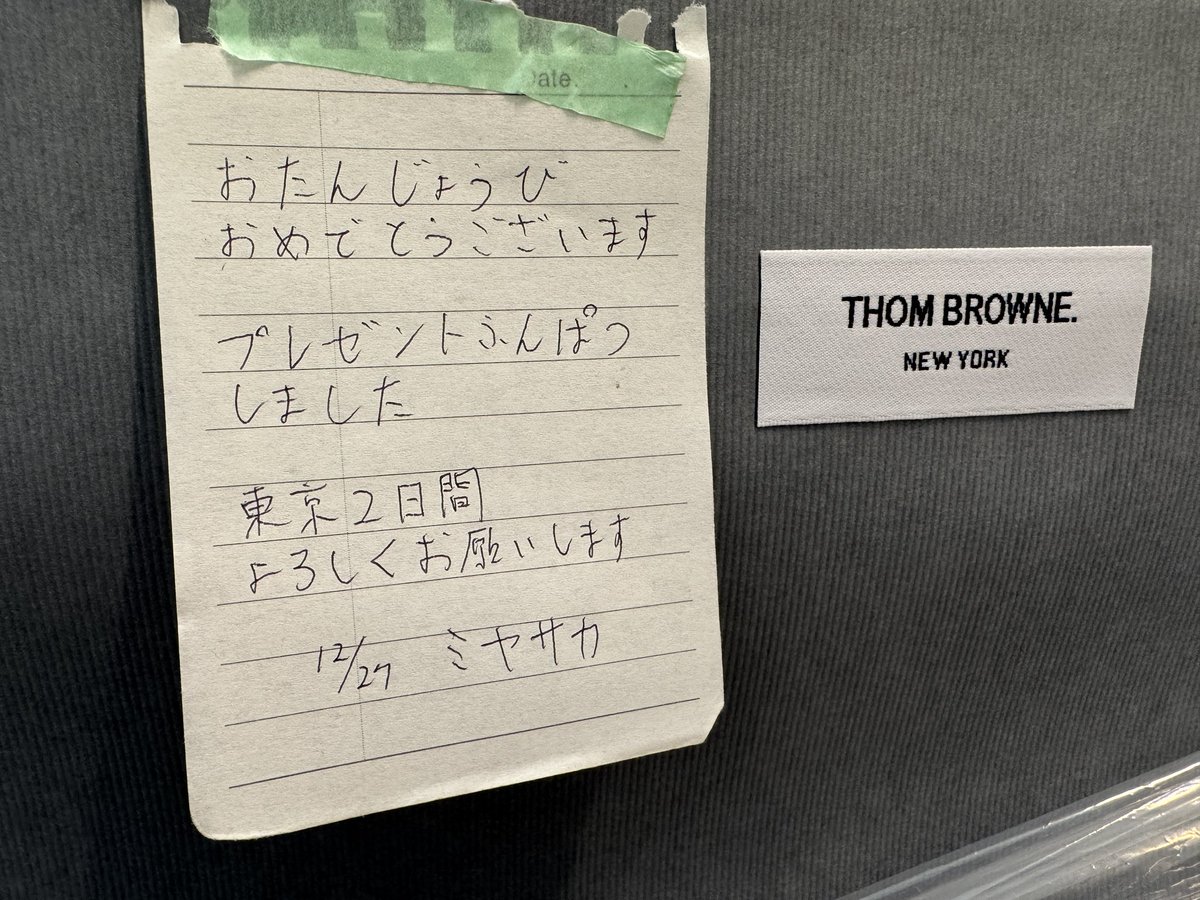 Date.
おたんじょうび
おめでとうございます
プレゼントふんぱつ
しました
東京2日間
よろしくお願いします
12/27 ミヤサカ
THOM BROWNE.
NEW YORK